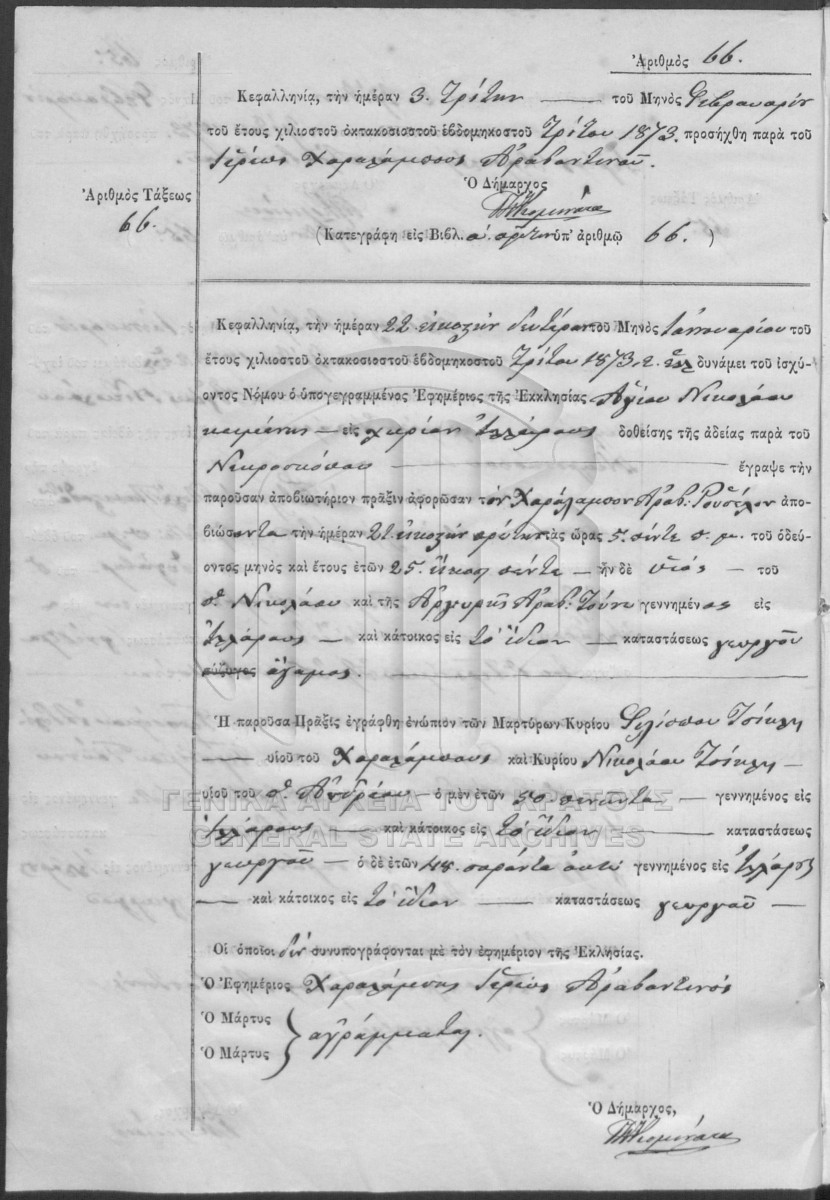 Ἀριθμὸς 66.
Κεφαλληνίᾳ, τὴν ἡμέραν 3. Τρίτην τοῦ Μηνὸς Φεβρουαρίου
τοῦ ἔτους χιλιοστοῦ ὀκτακοσιοστοῦ ἑβδομηκοστοῦ Τρίτου 1873. προσήχθη παρὰ τοῦ
Ἱερέως Χαραλάμπους Ἀραβαντινοῦ.
Ὁ Δήμαρχος
Ἀριθμὸς Τάξεως
66.
(Κατεγράφη εἰς Βιβλ. αʹ. ὑπ' ἀριθμῷ 66.)
Κεφαλληνίᾳ, τὴν ἡμέραν 22 εἰκοστὴν δευτέραν τοῦ Μηνὸς Ἰαννουαρίου τοῦ
ἔτους χιλιοστοῦ ὀκτακοσιοστοῦ ἑβδομηκοστοῦ Τρίτου 1873. δυνάμει τοῦ ἰσχύ-
οντος Νόμου ὁ ὑπογεγραμμένος Ἐφημέριος τῆς Ἐκκλησίας Ἁγίου Νικολάου
κειμένης εἰς χωρίον δοθείσης τῆς ἀδείας παρὰ τοῦ
Νεκροσκόπου ἔγραψε τὴν
παροῦσαν ἀποβιωτήριον πρᾶξιν ἀφορῶσαν τὸν Χαράλαμπον Ἀραβ: ἀπο-
βιώσαντα τὴν ἡμέραν 21 εἰκοστὴν πρώτην τὰς ὥρας 5. πέντε π. μ. τοῦ ὁδεύ-
οντος μηνὸς καὶ ἔτους ἐτῶν 25. εἴκοσι πέντε ἦν δὲ υἱὸς τοῦ
π. Νικολάου καὶ τῆς Ἀργυρῆς Ἀραβ: γεννημένος εἰς
καὶ κάτοικος εἰς τὸ ἴδιον καταστάσεως γεωργοῦ
σύζυγος ἄγαμος.
Ἡ παροῦσα Πρᾶξις ἐγράφθη ἐνώπιον τῶν Μαρτύρων Κυρίου Φιλίππου
υἱοῦ τοῦ Χαραλάμπους καὶ Κυρίου Νικολάου
υἱοῦ τοῦ π. Ἀνδρέου ὁ μὲν ἐτῶν 50. πενῆντα γεννημένος εἰς
ΓΕΝΙΚΑ ΑΡΧΕΙΑ ΤΟΥ ΚΡΑΤΟΥΣ
καὶ κάτοικος εἰς τὸ ἴδιον καταστάσεως
GENERAL STATE ARCHIVES
γεωργοῦ ὁ δὲ ἐτῶν 48. σαράντα ὀκτὼ γεννημένος εἰς
καὶ κάτοικος εἰς τὸ ἴδιον καταστάσεως γεωργοῦ
Οἱ ὁποῖοι δὲν συνυπογράφονται μὲ τὸν ἐφημέριον τῆς Ἐκλησίας.
Ὁ Ἐφημέριος Χαραλάμπης Ἱερεὺς Ἀραβαντινός
Ὁ Μάρτυς
Ὁ Μάρτυς
ἀγράμματοι.
Ὁ Δήμαρχος,